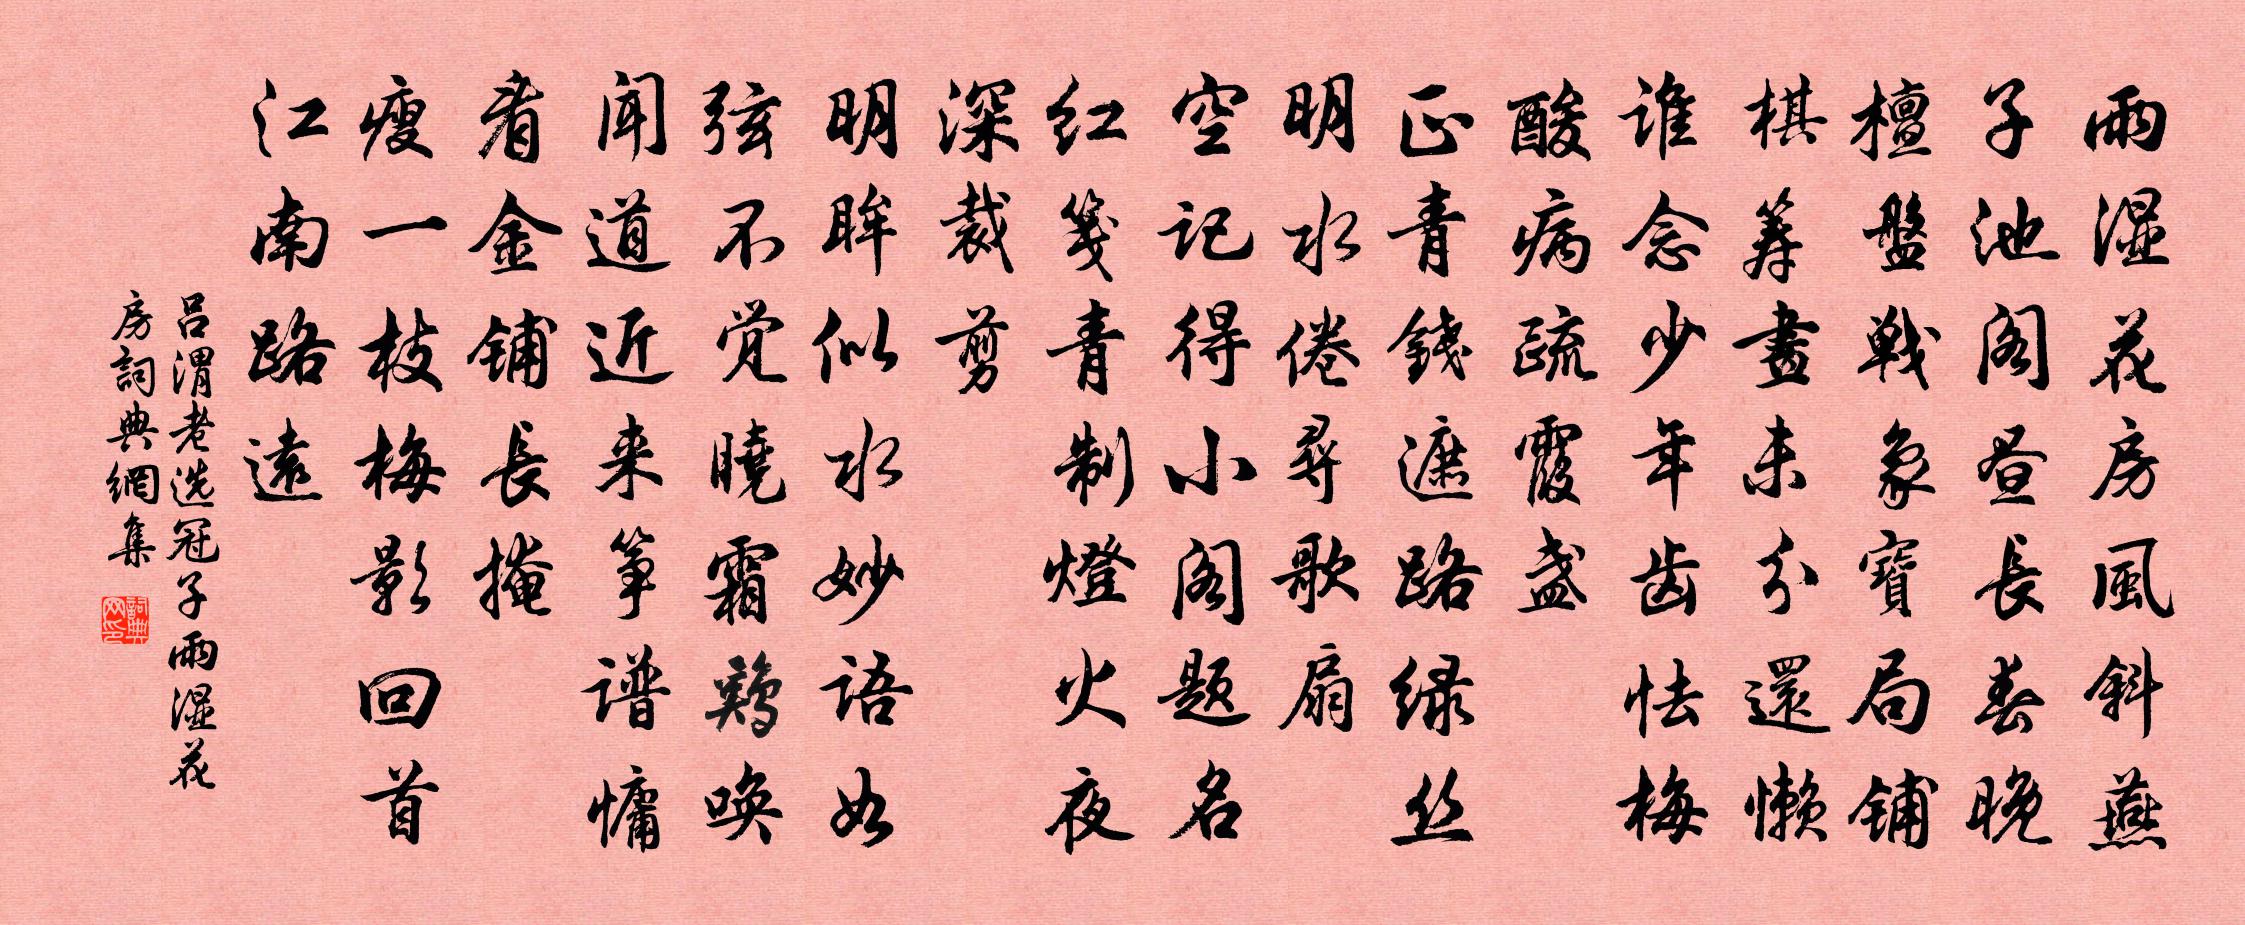 雨湿花房風斜燕
子池阁昼長春晚
檀盤戦象寶局铺
棋筹畫未分還懒
谁念少年齿怯梅
酸病疏霞盏
正青錢遮路绿丝
明水倦尋歌扇
空记得小阁题名
红笺青制燈火夜
深裁剪
明眸似水妙语如
弦不觉曉霜鷄唤
闻道近来筝谱慵
看金铺長掩
瘦一枝梅影回首
江南路遠
吕渭老选冠子雨湿花
房詞典網集